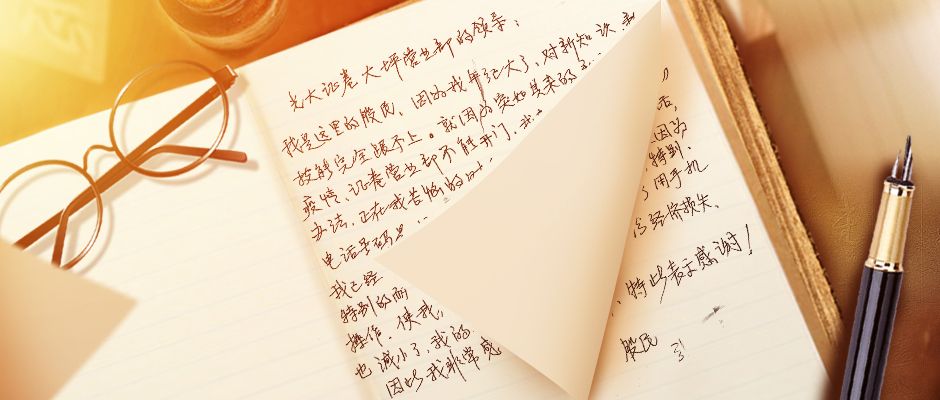 光大证卷大坪营业部的领导：
我是这里的股民，因为我年纪大了，对新知识、
技能完全跟不上。就因为突如其来的
疫情，证卷营业部不能开门，
办法，正在我苦恼的时
电话号码 因为
我已经 特别
特别的耐 了用手机
操作，使我 经济损失
也减小了，我的
因此我非常感 特此表示感谢！
股民